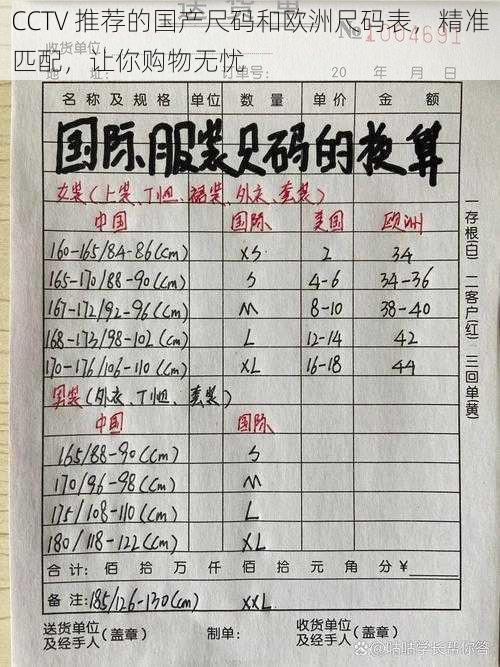 CCTV 推荐的国产尺码和欧洲尺码表，精准
匹配，让你购物无忧
送货单
收货单位
1004691
收货人 20 年 月 日
名称及规格 单位 数量 单价 金额
国际服装尺码的换算
女装(上装、T恤、裙装、外衣、套装)
中国 国际 美国 欧洲
160-165/84-86(cm) XS 2 34
165-170/88-90(cm) S 4-6 34-36
167-172/92-96(cm) M 8-10 38-40
168-173/98-102(cm) L 12-14 42
170-176/106-110(cm) XL 16-18 44
男装(外衣、T恤、套装)
中国 国际
165/88-90(cm) S
170/96-98(cm) M
175/108-110(cm) L
180/118-122(cm) XL
合计: 佰 拾 万 仟 佰 拾 元 角 分¥
备注:185/126-130(cm) XXL
送货单位
及经手人(盖章)
收货单位
及经手人(盖章)
一存根(白) 二客户(红) 三回单(黄)
@咕咕学长帮你答